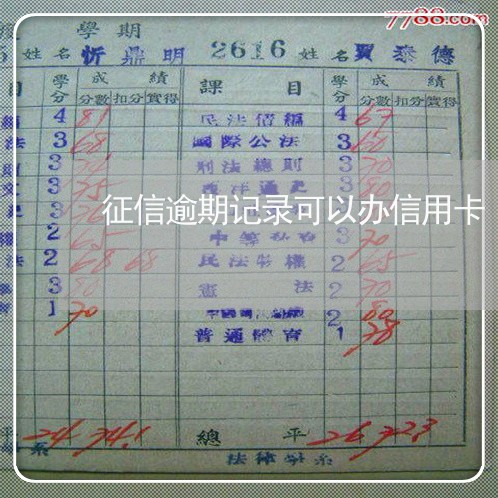 7788.com
學期
姓名 忻鼎明 2616 姓名 賈泰德
目 學分 成績 課目 學分 成績
分數 扣分 實得 分數 扣分 實得
4 81 民法債編 4 67
法 3 68 國際公法 3 60
3 刑法總則 3 70
3 75 西洋通史 3 80
征信逾期记录可以办信用卡
2 65 3 70
法 2 68 68 民法物權 2 65
3 80 憲法 2 70
1 70 2 80
普通體育 1 78
平 24 74.1 總平 26 72.3
系 法律學系